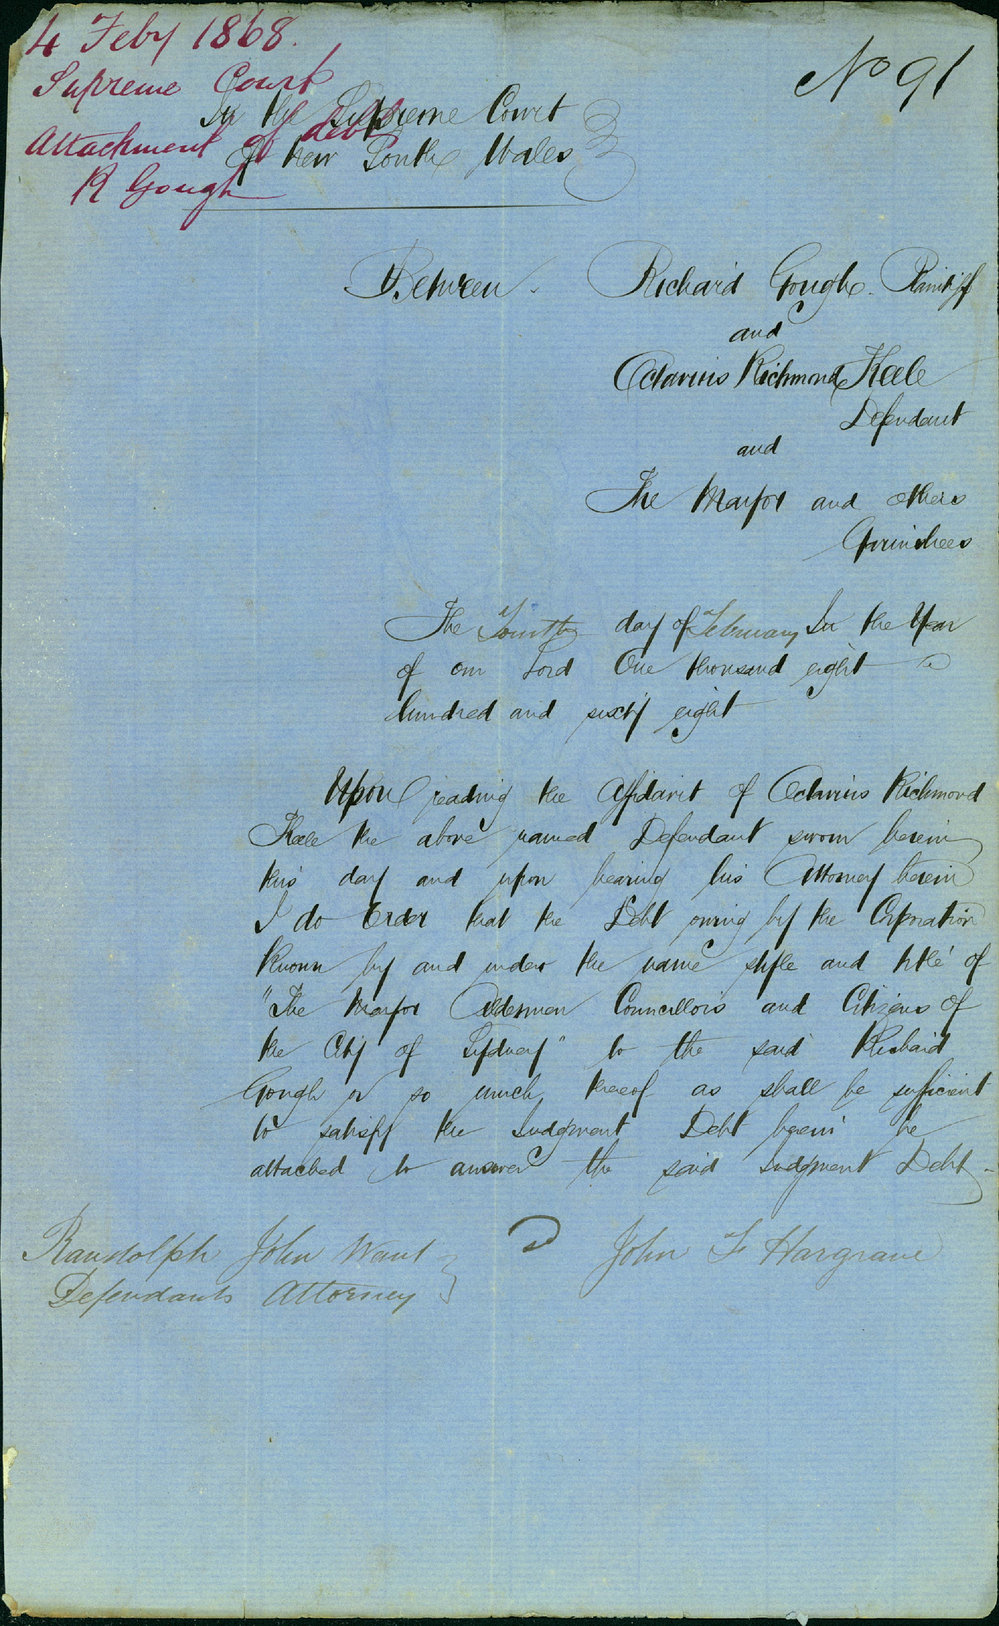 4 Feby 1868.
Supreme Court
Attachment of debt
R Gough
No 91
In the Supreme Court
of New South Wales
Between Richard Gough Plaintiff
and
Octavius Richmond Keele
Defendant
and
The Mayor and others
Garnishees
The Fourth day of February In the Year
of our Lord One thousand eight
hundred and sixty eight
Upon reading the Affidavit of Octavius Richmond
Keele the above named Defendant sworn herein
this day and upon hearing his Attorney herein
I do Order that the Debt owing by the Corporation
known by and under the name style and title of
"The Mayor Aldermen Councillors and Citizens of
the City of Sydney" to the said Richard
Gough or so much thereof as shall be sufficient
to satisfy the Judgment Debt herein be
attached to answer the said Judgment Debt
Randolph John Want
Defendants Attorney
John F Hargrave